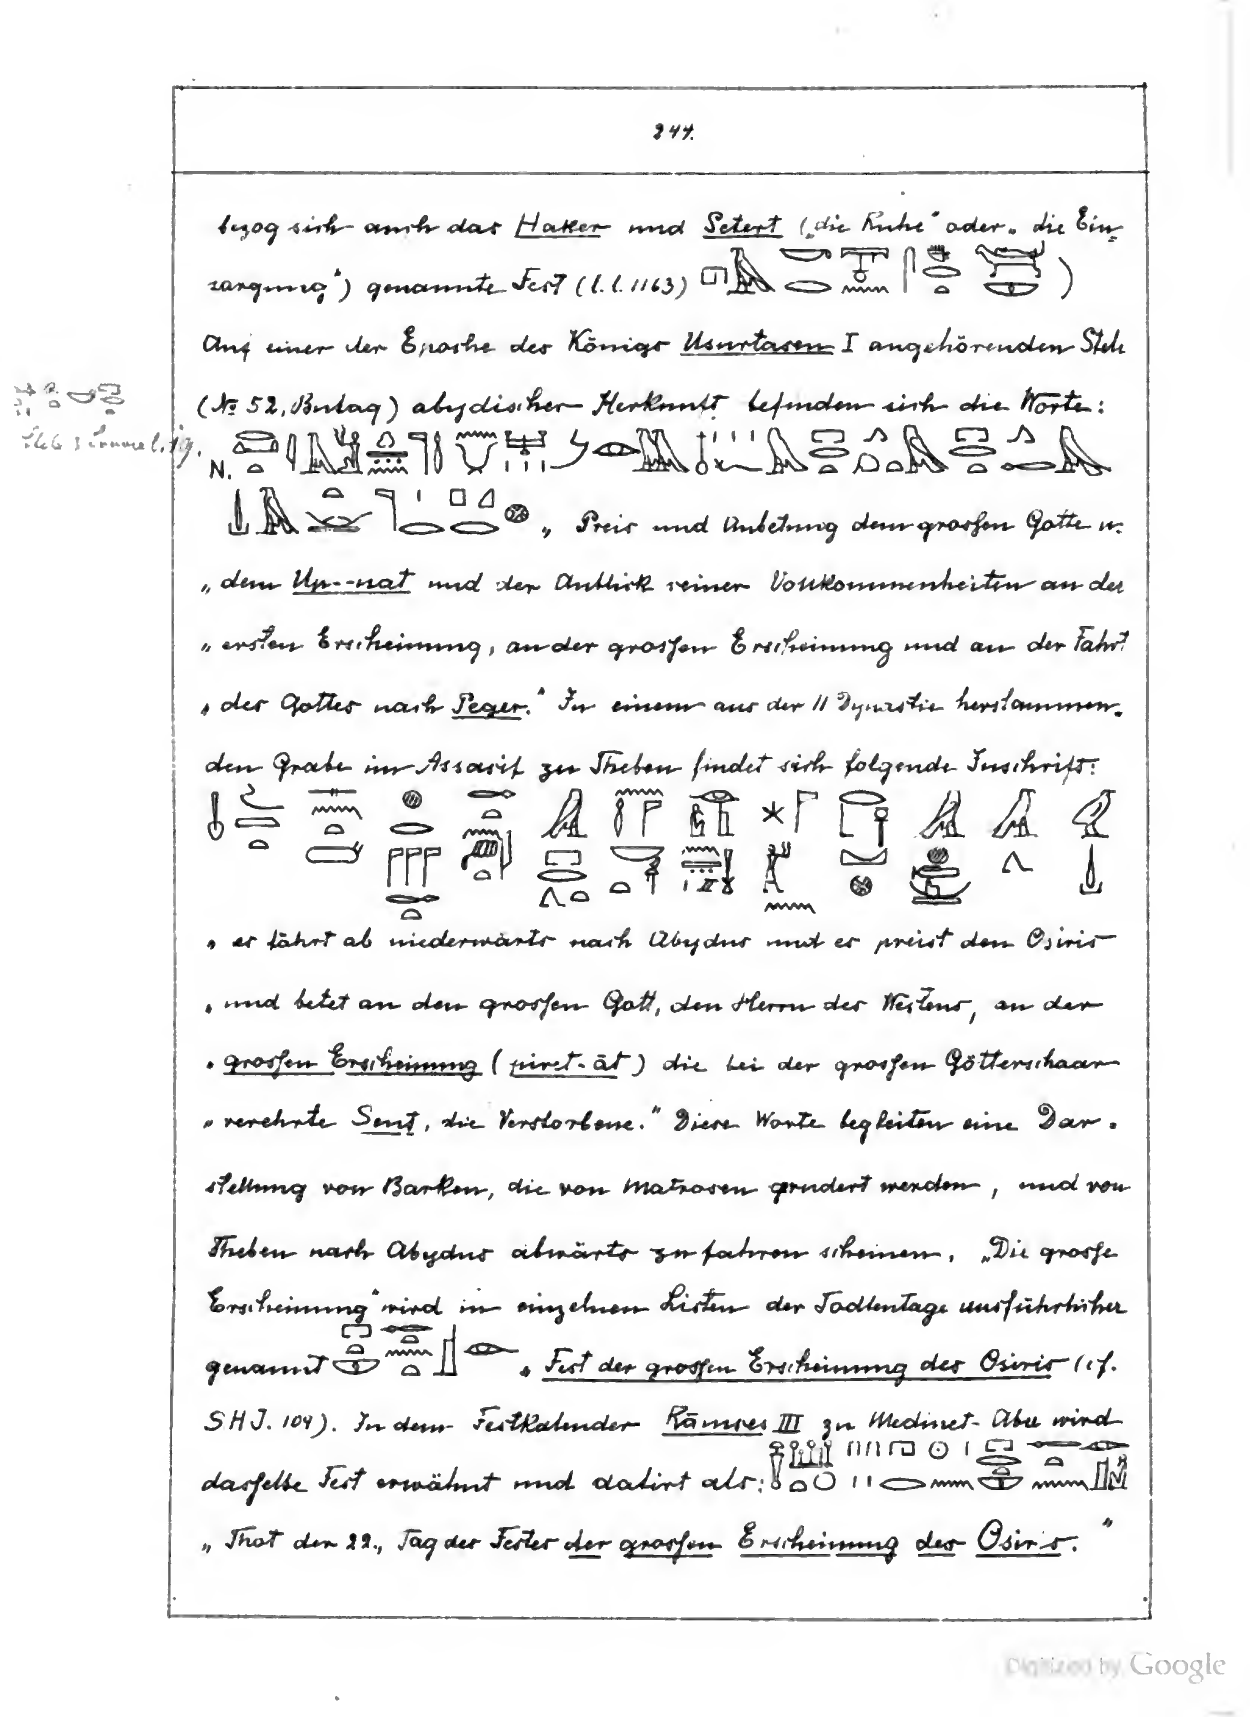 244.
bezog sich auch das Haker und Setert („die Ruhe“ oder „die Ein-
sargung“) genannte Fest (l. l. 1163) )
Auf einer der Epoche des Königs Usurtasen I angehörenden Stele
(№ 52, Bulaq) abydischer Herkunft befinden sich die Worte:
N.
„ Preis und Anbetung dem grossen Gotte u.
„ dem Up--nat und der Anblick seiner Vollkommenheiten an der
„ ersten Erscheinung, an der grossen Erscheinung und an der Fahrt
„ des Gottes nach Peger.“ In einem aus der 11 Dynastie herstammen-
den Grabe im Assasif zu Theben findet sich folgende Inschrift:
„ er fährt ab niederwärts nach Abydus und er preist den Osiris
„ und betet an den grossen Gott, den Herrn des Westens, an der
„ grossen Erscheinung (piret-āt) die bei der grossen Götterschaar
„ verehrte Sent, die Verstorbene.“ Diese Worte begleiten eine Dar-
stellung von Barken, die von Matrosen gerudert werden, und von
Theben nach Abydus abwärts zu fahren scheinen. „Die grosse
Erscheinung“ wird in einzelnen Listen der Todtentage ausführlicher
genannt „ Fest der grossen Erscheinung des Osiris (cf.
SHJ. 104). In dem Festkalender Rāmses III zu Medinet-Abu wird
dasselbe Fest erwähnt und datirt als:
„ Thot den 22., Tag des Festes der grossen Erscheinung des Osiris.“
Digitized by Google